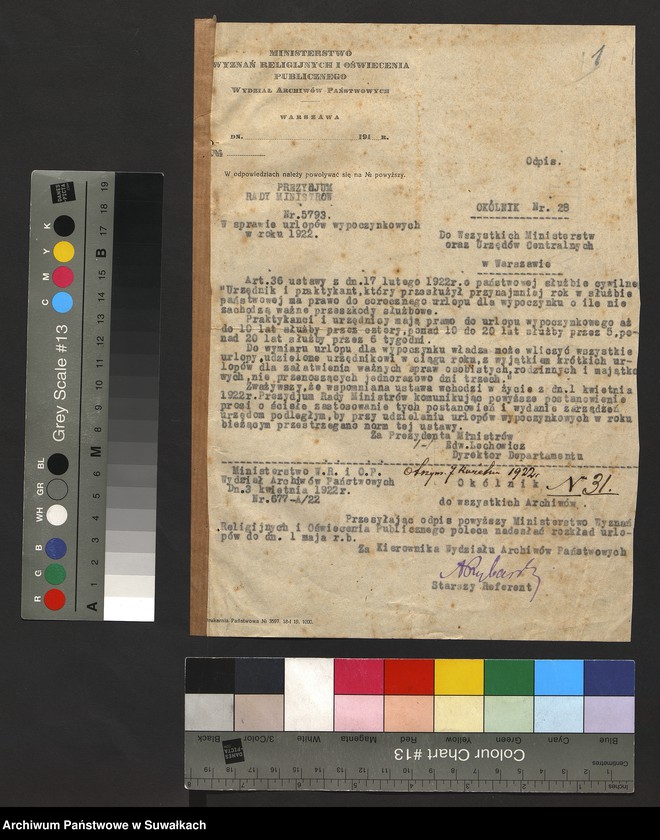 1
MINISTERSTWO
WYZNAŃ RELIGIJNYCH I OŚWIECENIA
PUBLICZNEGO
WYDZIAŁ ARCHIWÓW PAŃSTWOWYCH
WARSZAWA
DN. 191 R.
№
W odpowiedziach należy powoływać się na № powyższy.
Odpis.
PREZYDJUM
RADY MINISTRÓW
Nr.5793.
W sprawie urlopów wypoczynkowych
w roku 1922.
OKÓLNIK Nr. 28
Do Wszystkich Ministerstw
oraz Urzędów Centralnych
w Warszawie
Art.36 ustawy z dn.17 lutego 1922r.o państwowej służbie cywilne
"Urzędnik i praktykant,który przesłużył przynajmniej rok w służbie
państwowej ma prawo do corocznego urlopu dla wypoczynku o ile nie
zachodzą ważne przeszkody służbowe.
Praktykanci i urzędnicy mają prawo do urlopu wypoczynkowego aż
do 10 lat służby przez cztery,ponad 10 do 20 lat służby przez 5,po-
nad 20 lat służby przez 6 tygodni.
Do wymiaru urlopu dla wypoczynku władza może wliczyć wszystkie
urlopy,udzielone urzędnikowi w ciągu roku,z wyjątkiem krótkich ur-
lopów dla załatwienia ważnych spraw osobistych,rodzinnych i majątko
wych,nie przenoszących jednorazowo dni trzech."
Zważywszy,że wspomniana ustawa wchodzi w życie z dn.1 kwietnia
1922r.Prezydjum Rady Ministrów komunikując powyższe postanowienie
prosi o ścisłe zastosowanie tych postanowień i wydanie zarządzeń
urzędom podległym,by przy udzielaniu urlopów wypoczynkowych w roku
bieżącym przestrzegano norm tej ustawy.
Za Prezydenta Ministrów
Edw.Lechowicz
Dyrektor Departamentu
Ministerstwo W.R. i O.P.
Wydział Archiwów Państwowych
Dn.3 kwietnia 1922r.
Nr.677-A/22
Otrzym. 7 kwietnia 1922r.
Okólnik N 31.
do wszystkich Archiwów.
Przesyłając odpis powyższy Ministerstwo Wyznań
Religijnych i Oświecenia Publicznego poleca nadesłać rozkład urlo-
pów do dn. 1 maja r.b.
Za Kierownika Wydziału Archiwów Państwowych
Starszy Referent
Grey Scale #13
C M Y K
R G B WH GR BL
A 1 2 3 4 5 6 M 8 9 10 11 12 13 14 15 B 17 18 19
DANES PICTA
Colour Chart #13
Blue Cyan Green Yellow Red Magenta White 3/Color Black
Centimetres
Inches
Archiwum Państwowe w Suwałkach